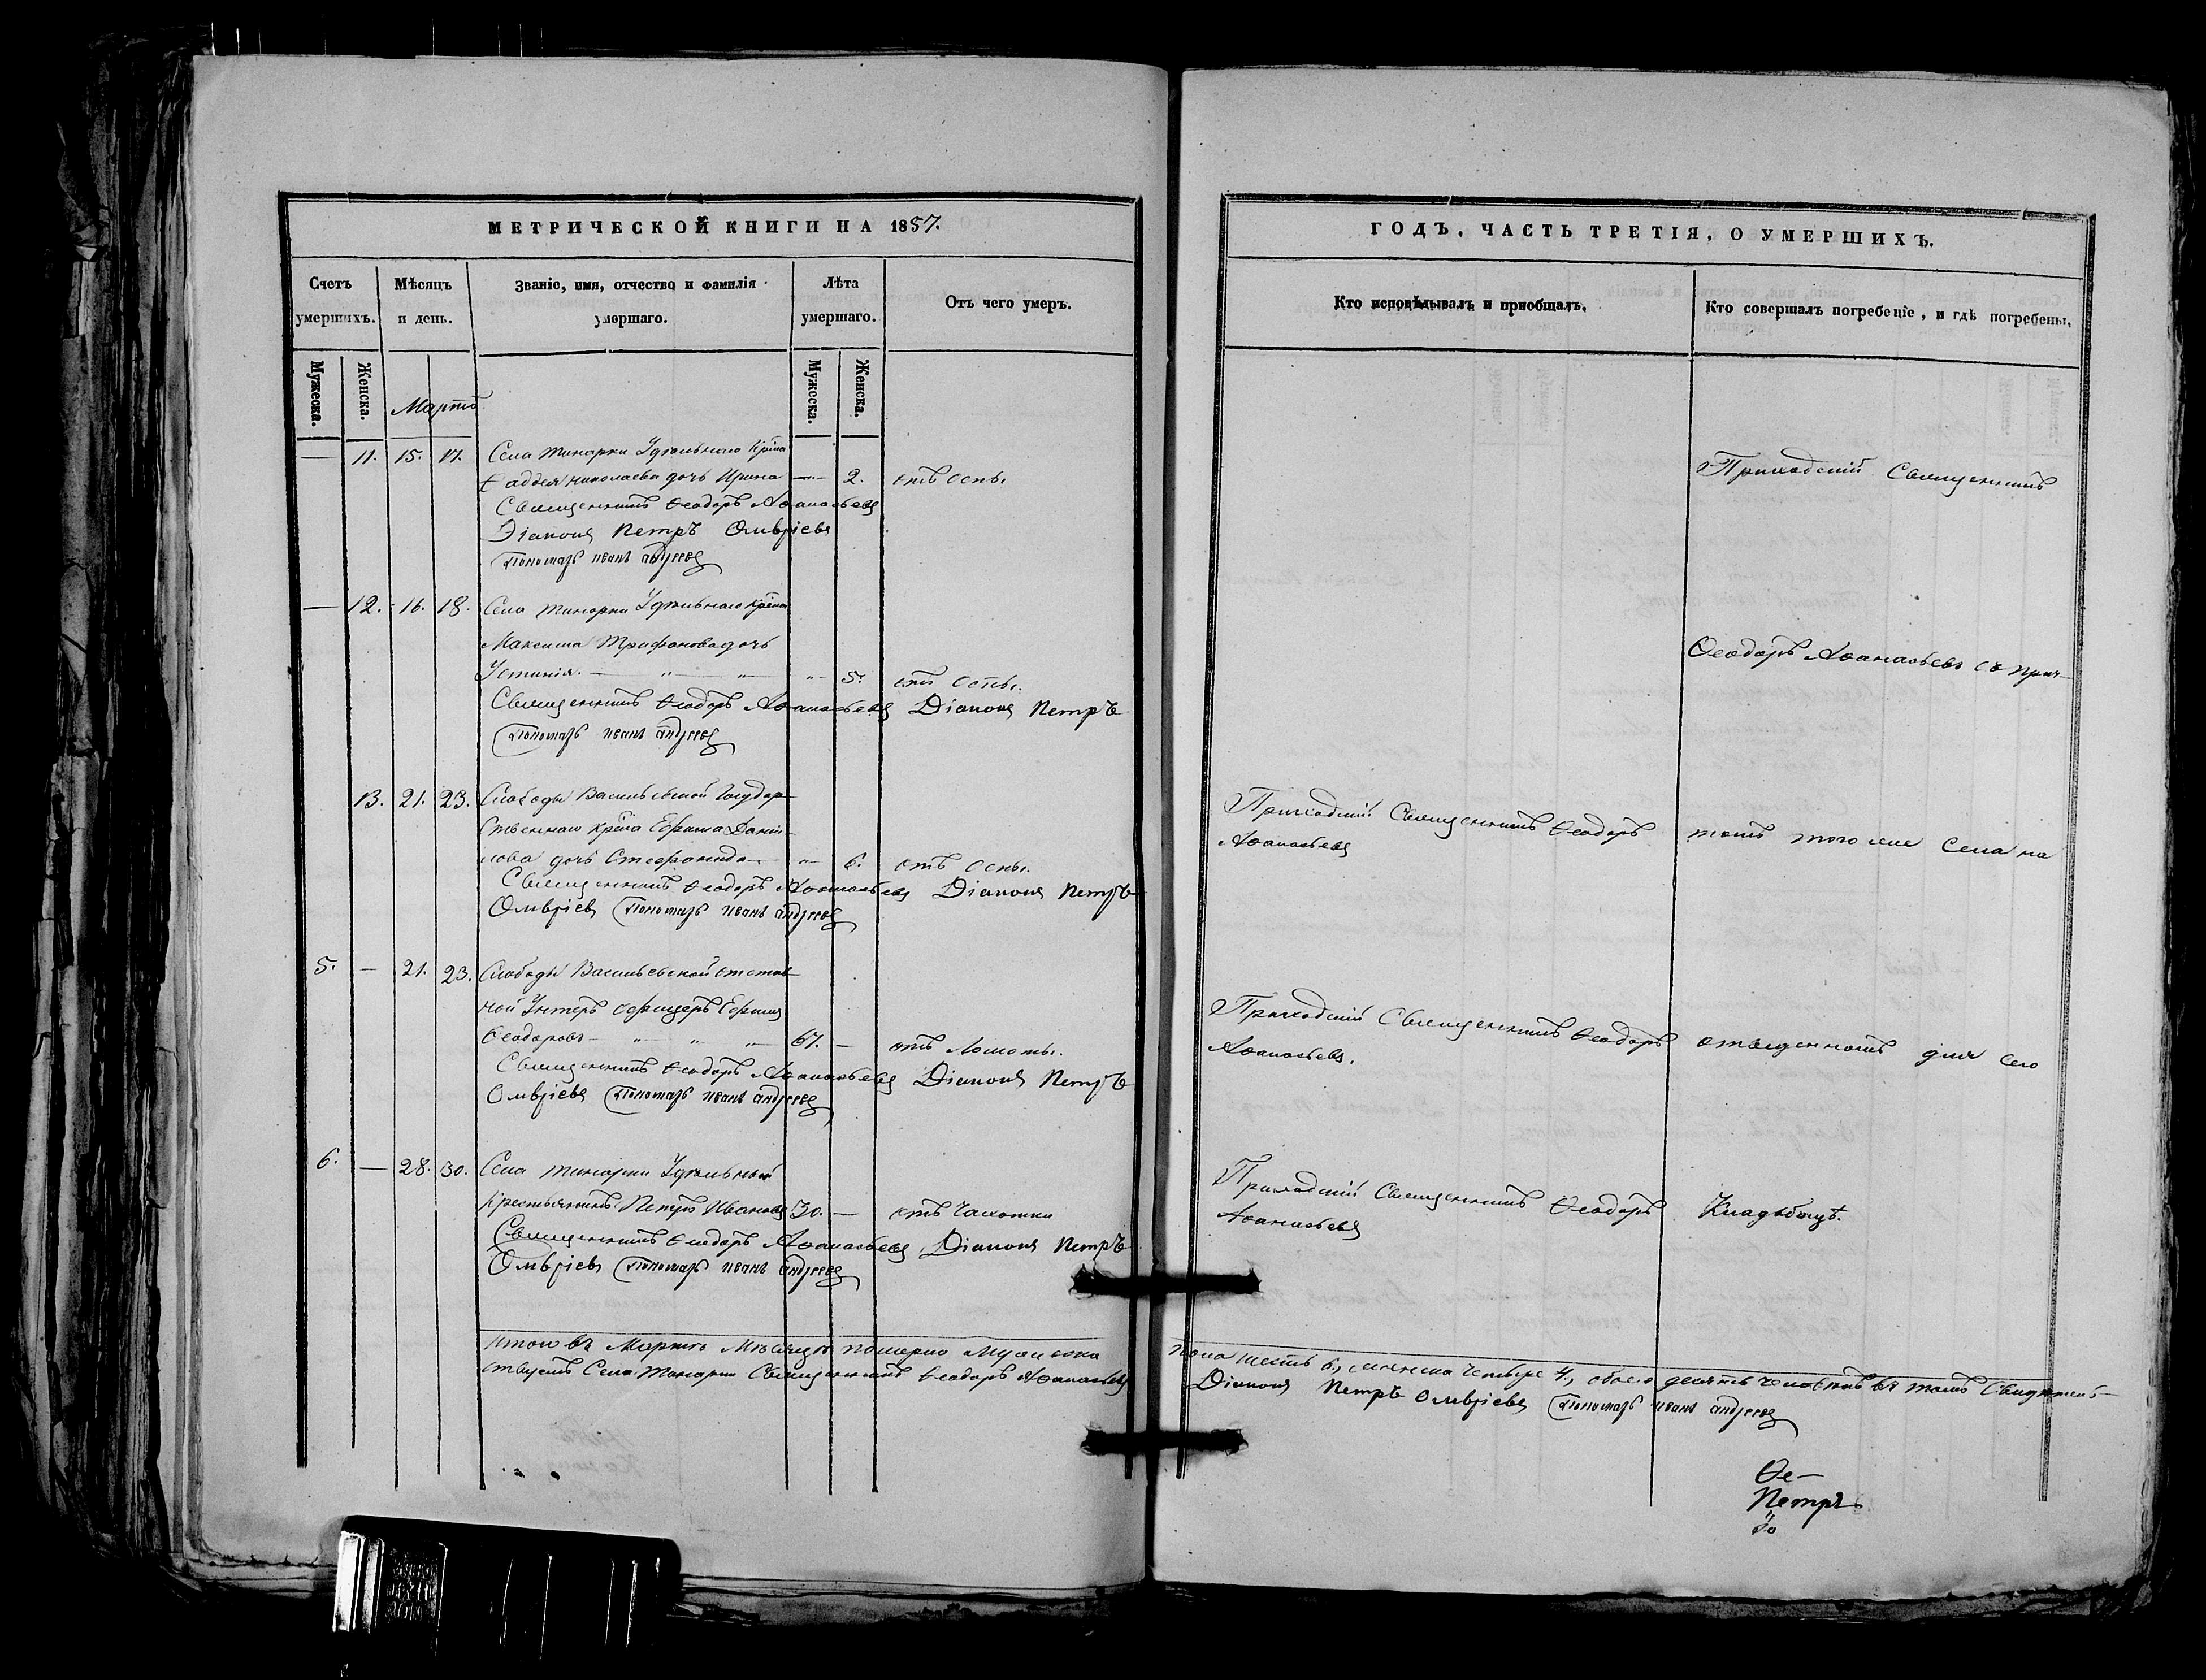 МЕТРИЧЕСКОЙ КНИГИ НА 1857.
Счетъ умершихъ.
Мѣсяцъ и день.
Званіе, имя, отчество и фамилія умершаго.
Лѣта умершаго.
Отъ чего умеръ.
Мужеска.
Женска.
Мужеска.
Женска.
Марта
— 11. 15. 17. Села Тинарки Удѣльнаго крѣна
Ѳаддея Николаева дочь Ирина — 2. отъ оспы
Священникъ Ѳеодоръ Аѳанасьевъ
Dіаконъ Петръ Омврїевъ
Пономарь Иванъ Андреевъ
— 12. 16. 18. Села Тинарки Удѣльнаго крѣна
Максима Трифонова дочь
Устинія — „ — „ — „ — 5. отъ оспы.
Священникъ Ѳеодоръ Аѳанасьевъ Dіаконъ Петръ
Пономарь Иванъ Андреевъ
13. 21. 23. Слободы Васильевской Государ-
ственнаго крѣна Ефима Дани-
лова дочь Стефанида — „ — 6. отъ оспы.
Священникъ Ѳеодоръ Аѳанасьевъ Dіаконъ Петръ
Омврїевъ Пономарь Иванъ Андреевъ
5. — 21. 23. Слободы Васильевской отстав-
ной Унтеръ офицеръ Ефимъ
Ѳеодоровъ — „ — „ — „ — 67. — отъ ломоты.
Священникъ Ѳеодоръ Аѳанасьевъ Dіаконъ Петръ
Омврїевъ Пономарь Иванъ Андреевъ
6. — 28. 30. Села Тинарки Удѣльный
крестьянинъ Петръ Ивановъ 30. — отъ чахотки
Священникъ Ѳеодоръ Аѳанасьевъ Dіаконъ Петръ
Омврїевъ Пономарь Иванъ Андреевъ
Итого въ Мартѣ Мѣсяцѣ померло Мужеска
ствуетъ Села Тинарки Священникъ Ѳеодоръ Аѳанасьевъ
ГОДЪ, ЧАСТЬ ТРЕТІЯ, О УМЕРШИХЪ.
Кто исповѣдывалъ и приобщалъ.
Кто совершалъ погребеніе, и гдѣ погребены.
Приходскій Священникъ
Ѳеодоръ Аѳанасьевъ съ прич-
Приходскій Священникъ Ѳеодоръ
Аѳанасьевъ
томъ того же Села на
Приходскій Священникъ Ѳеодоръ
Аѳанасьевъ.
отведенномъ для сего
Приходскій Священникъ Ѳеодоръ
Аѳанасьевъ
Кладбищѣ.
пола шесть 6., женска четыре 4., обоего десять человѣкъ въ томъ Свидѣтель-
Dіаконъ Петръ Омврїевъ Пономарь Иванъ Андреевъ
Ѳе-
Петръ